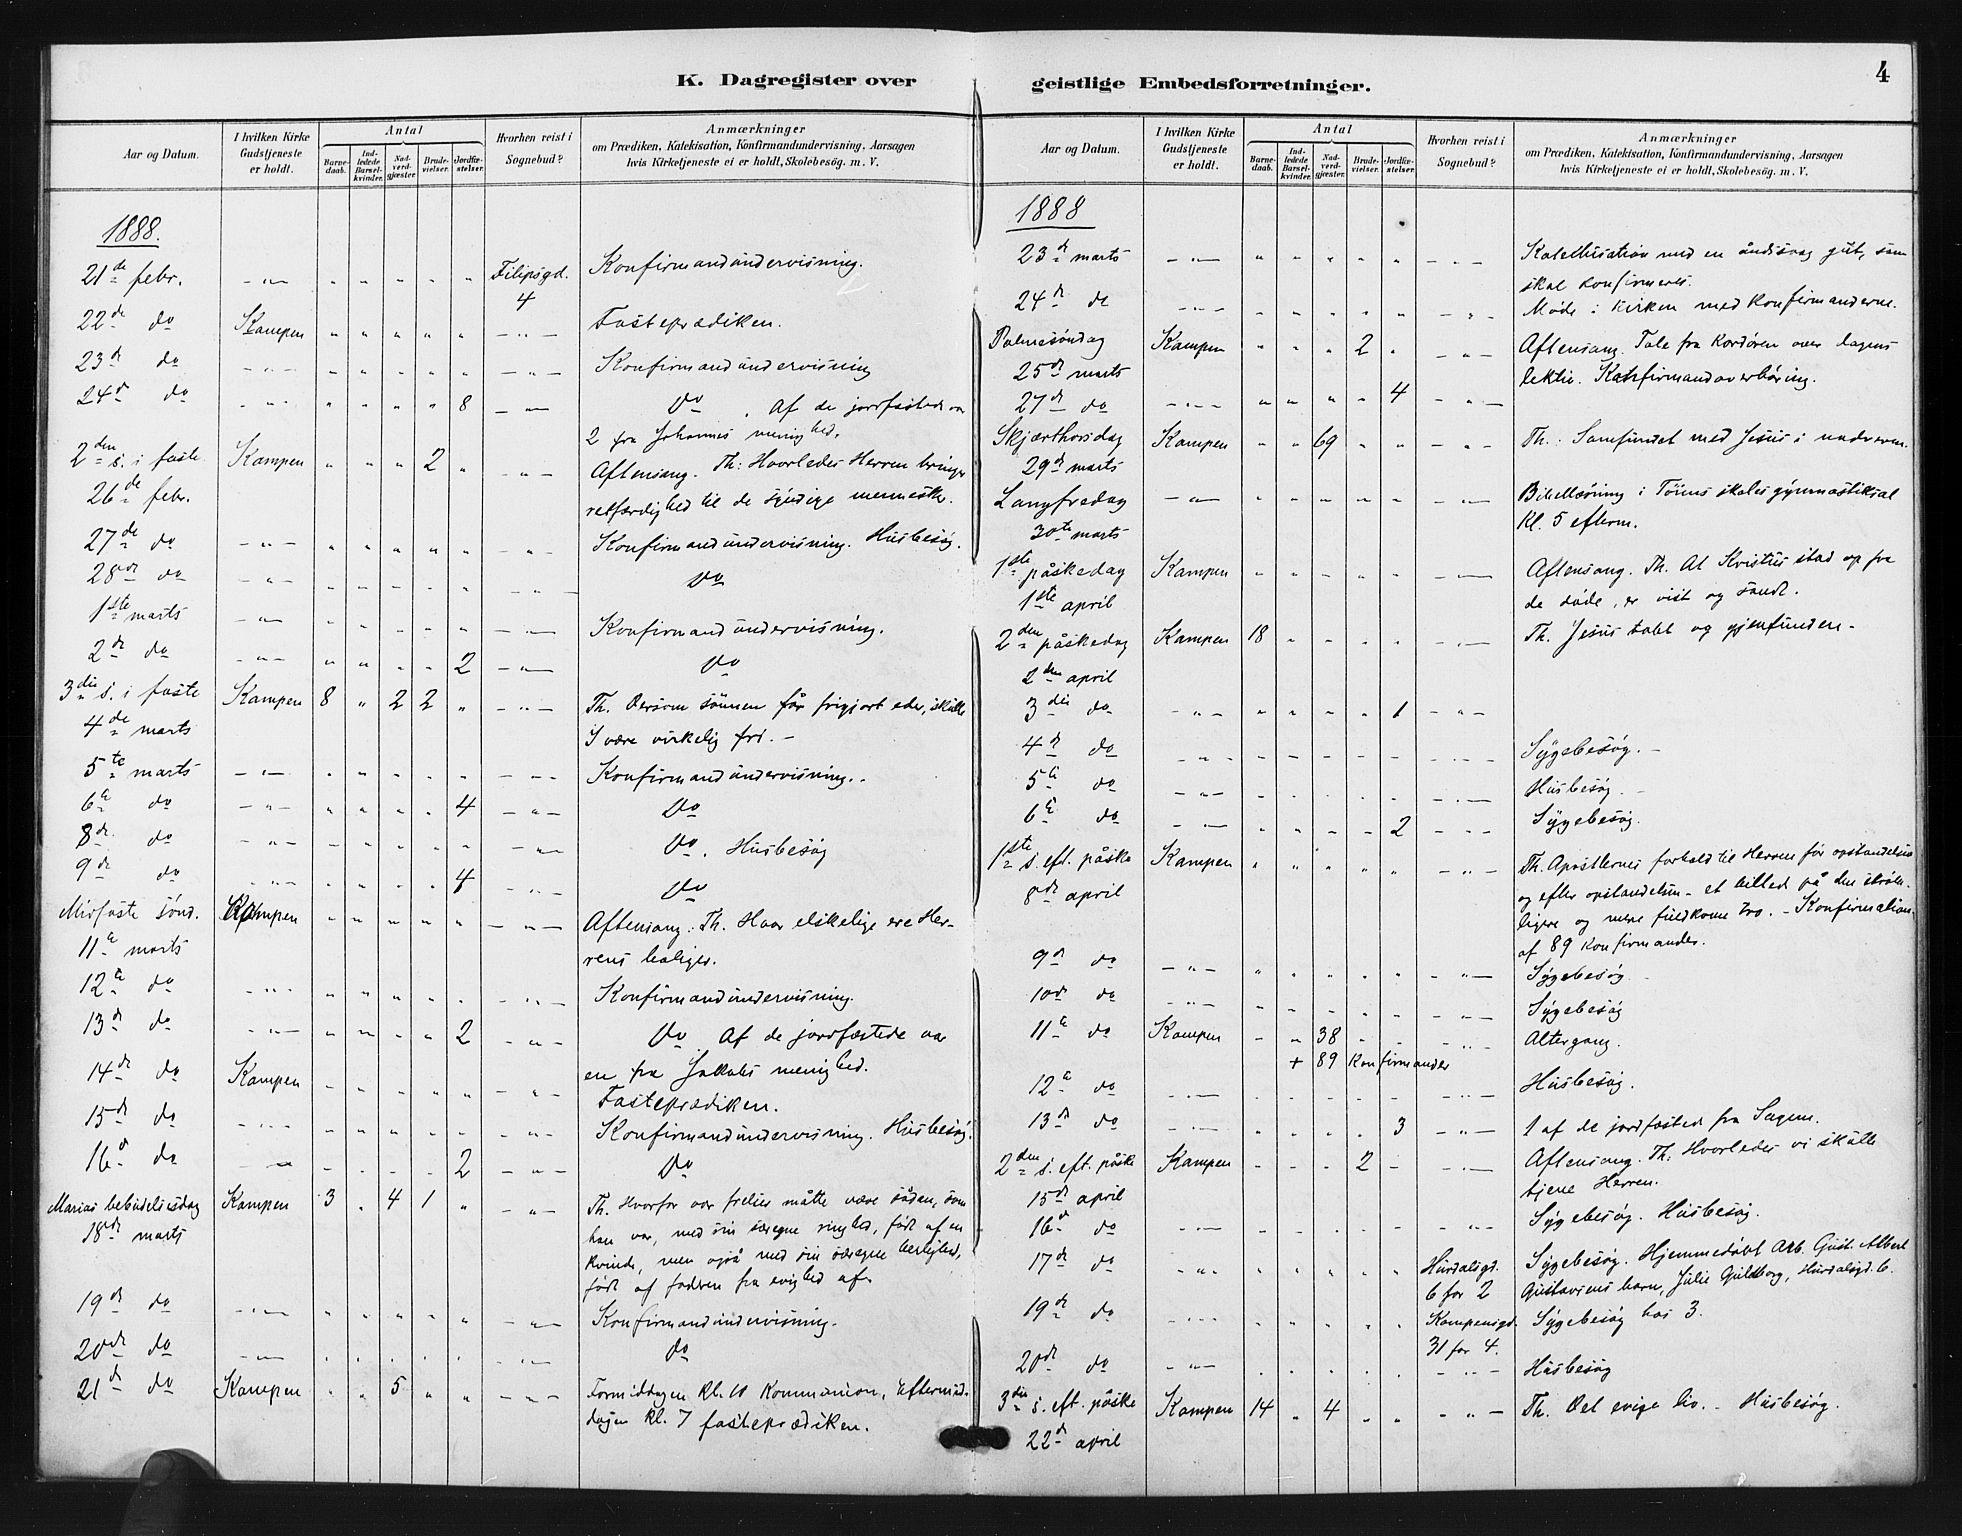 K. Dagregister over geistlige Embedsforretninger.
4
Aar og Datum. I hvilken Kirke Gudstjeneste er holdt. Antal Barnedaab. Indledede Barselkvinder. Nadverdgjæster. Brudevielser. Jordfæstelser. Hvorhen reist i Sognebud? Anmærkninger om Prædiken, Katekisation, Konfirmandundervisning, Aarsagen hvis Kirketjeneste ei er holdt, Skolebesög. m. V.
1888.
21de febr. - " - " " " " " Filipsgd. 4 Konfirmandundervisning.
22de do Kampen " " " " " - " - Fasteprædiken.
23de do - " - " " " " " - " - Konfirmandundervisning
24de do " " " " " 8 - " - Do. Af de jordfæstede var
2 fra Johannes menighed.
2den s. i faste Kampen " " " 2 " - " - Aftensang. Th: Hvorledes Herren bringer
26de febr. retfærdighed til de syndige mennesker.
27de do - " - " " " " " - " - Konfirmandundervisning. Husbesøg.
28de do - " - " " " " " - " - Do
1ste marts - " - " " " " " - " - Konfirmandundervisning.
2de do - " - " " " " 2 - " - Do
3die s. i faste Kampen 8 " 2 2 " - " - Th. Dersom sønnen får frigjort eder, skulle
4de marts I være virkelig fri. -
5te marts - " - " " " " " - " - Konfirmandundervisning.
6te do - " - " " " " 4 - " - Do
8de do - " - " " " " " - " - Do. Husbesøg
9de do - " - " " " " 4 - " - Do
Midfaste sønd. Kampen " " " " " - " - Aftensang. Th. Hvor elskelige ere Her-
11te marts rens boliger.
12te do - " - " " " " " - " - Konfirmandundervisning.
13de do - " - " " " " 2 - " - Do Af de jordfæstede var
en fra Jakobs menighed.
14de do Kampen " " " " " - " - Fasteprædiken.
15de do - " - " " " " " - " - Konfirmandundervisning. Husbesøg.
16de do - " - " " " " 2 - " - Do
Marias bebudelsesdag Kampen 3 " 4 1 " - " - Th. Hvorfor vor frelser måtte være sådan, som
18de marts han var, med sin særegne ringhed, født af en
kvinde, men også med sin særegne herlighed,
født af faderen fra evighed af.
19de do - " - " " " " " - " - Konfirmandundervisning.
20de do - " - " " " " " - " - Do
21de do Kampen " " 5 " " - " - Formiddagen kl. 10 Kommunion, Eftermid-
dagen kl. 7 fasteprædiken.
Aar og Datum. I hvilken Kirke Gudstjeneste er holdt. Antal Barnedaab. Indledede Barselkvinder. Nadverdgjæster. Brudevielser. Jordfæstelser. Hvorhen reist i Sognebud? Anmærkninger om Prædiken, Katekisation, Konfirmandundervisning, Aarsagen hvis Kirketjeneste ei er holdt, Skolebesög. m. V.
1888
23de marts - " - " " " " " - " - Katekisation med en åndssvag gut, som
skal konfirmeres.
24de do - " - " " " " " - " - Møde i kirken med konfirmanderne.
Palmesøndag Kampen " " " 2 " - " - Aftensang. Tale fra kordøren over dagens
25de marts lektie. Konfirmandoverhøring.
27de do - " - " " " " 4 - " -
Skjærthorsdag Kampen " " 69 " " - " - Th.: Samfundet med Jesus i nadveren.
29de marts
Langfredag - " - " " " " " - " - Bibellæsning i skoles gymnastiksal
30te marts kl. 5 efterm.
1ste påskedag Kampen " " " " " - " - Aftensang. Th. At Kristus stod op fra
1ste april de døde, er vist og sandt.
2den påskedag Kampen 18 " " " " - " - Th. Jesus tabt og gjenfunden -
2den april
3die do - " - " " " " 1 - " -
4de do - " - " " " " " - " - Sygebesøg. -
5te do - " - " " " " " - " - Husbesøg. -
6te do - " - " " " " 2 - " - Sygebesøg.
1ste s. eft. påske Kampen " " " " " - " - Th. Apostlernes forhold til Herren før opstandelsen
8de april og efter opstandelsen - et billed på den
ligere og mere fuldkomne tro. - Konfirmation
af 89 konfirmander.
9de do - " - " " " " " - " - Sygebesøg
10de do - " - " " " " " - " - Sygebesøg
11te do Kampen " " 38 " " - " - Altergang.
+ 89 konfirmander
12te do - " - " " " " " - " - Husbesøg.
13de do - " - " " " " 3 - " - 1 af de jordfæstede fra Sagene.
2den s. eft. påske Kampen - - - 2 - - " - Aftensang. Th: Hvorledes vi skulle
15de april tjene Herren.
16de do - " - " " " " " - " - Sygebesøg. Husbesøg.
17de do - " - " " " " " Hurdalsgd. 6 for 2 Sygebesøg. Hjemmedøbt Arb. Gust. Albert
Gustavsens barn, Julie Guldborg, Hurdalsgd. 6.
19de do - " - " " " " " Kampensgd. 31 for 4. Sygebesøg hos 3.
20de do - " - " " " " " - " - Husbesøg
3die s. eft. påske Kampen 14 " 4 " " - " - Th. Det evige liv. - Husbesøg.
22de april